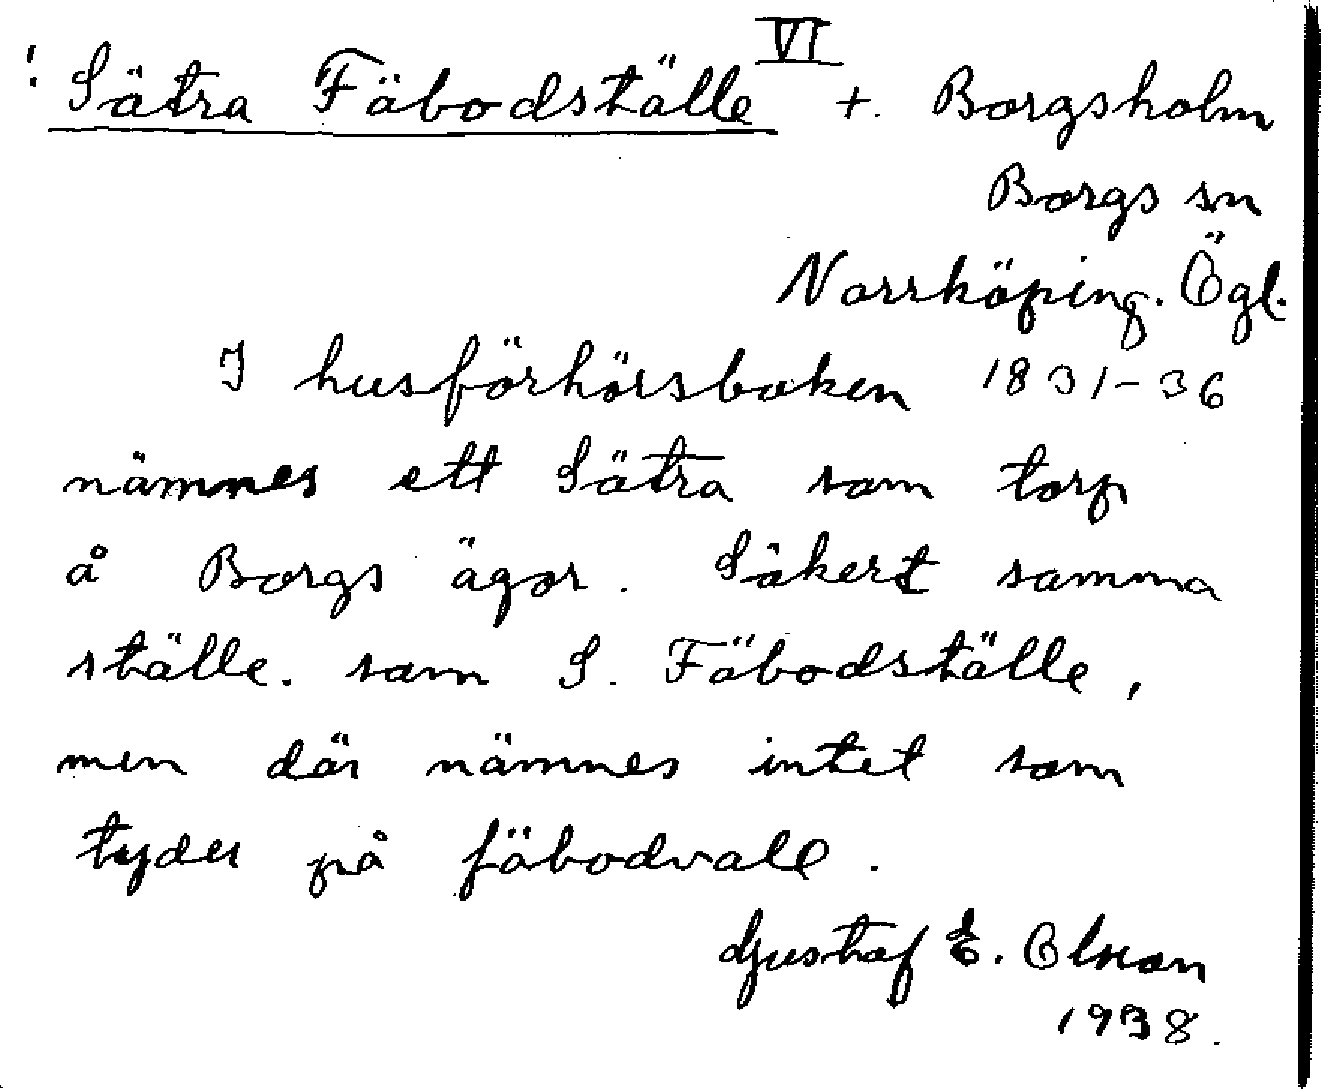 ! Sätra Fäbodställe VI +. Borgsholm
Borgs sn
Norrköping. Ögl.
I husförhörsboken 1831-36
nämnes ett Sätra som torp
å Borgs ägor. Säkert samma
ställe. som S. Fäbodställe,
men där nämnes intet som
tyder på fäbodvall.
Gustaf E. Olsson
1938.